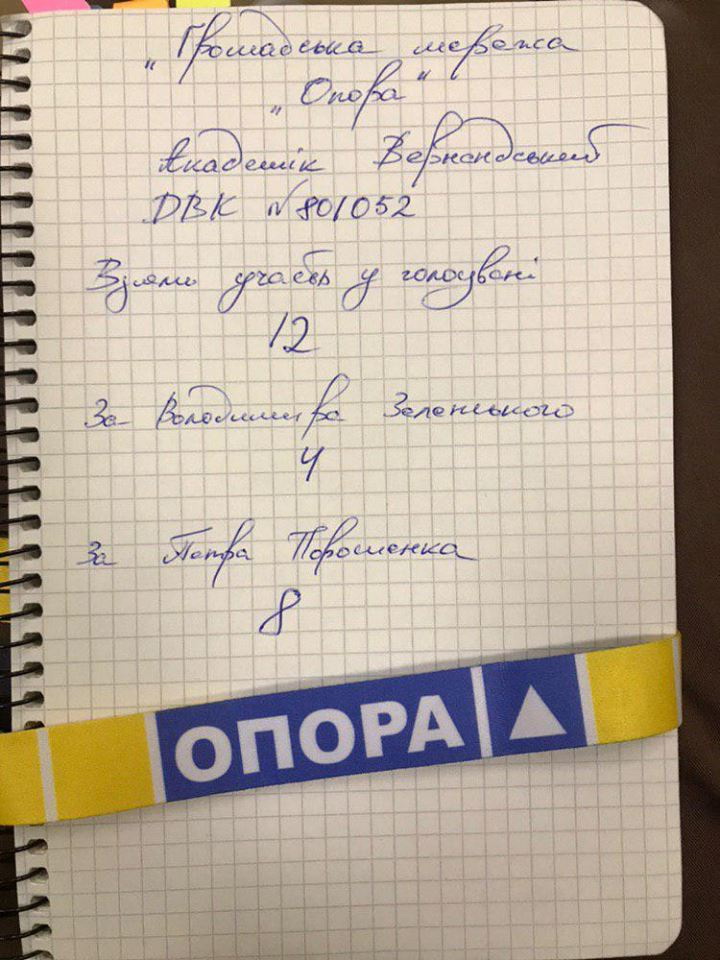 „Громадська мережа
„Опора"
Академік Вернандський
ДВК №801052
Взяли участь у голосувані
12
За Володимира Зеленського
4
За Петра Порошенка
8
ОПОРА